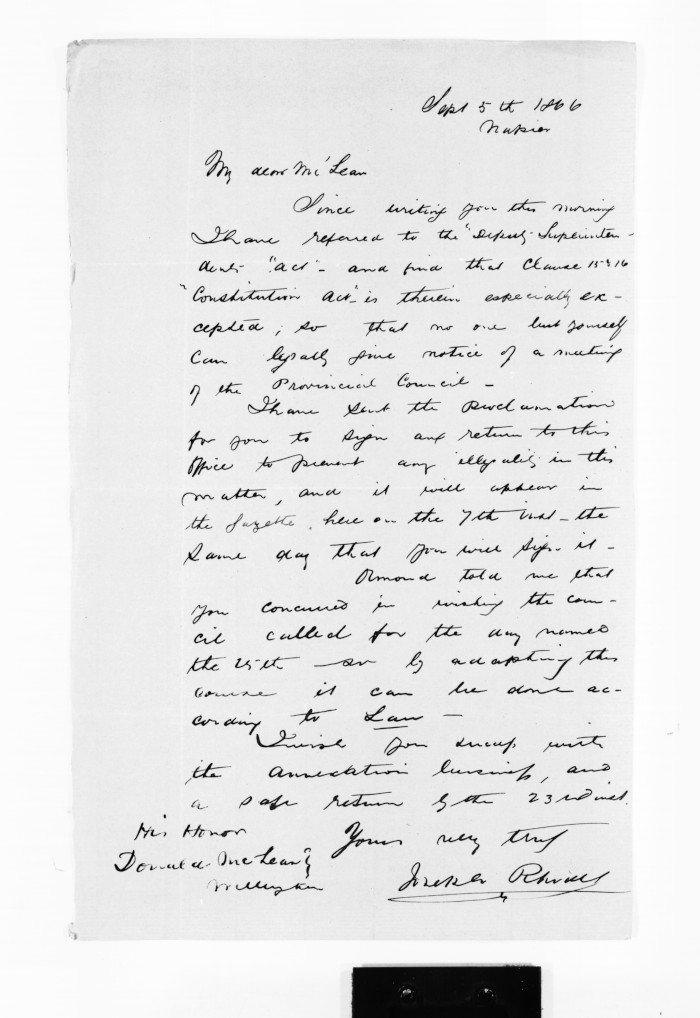 Sept 5th 1866
Napier
My dear McLean
Since writing you this morning
I have referred to the "Deputy Superinten-
dents "Act" - and find that Clause 15 & 16
"Constitution Act" is therein especially ex-
cepted; so that no one but yourself
can legally give notice of a meeting
of the Provincial Council -
I have sent the Proclamation
for you to sign and return to this
office to prevent any illegality in this
matter, and it will appear in
the Gazette, here on the 7th inst - the
same day that you will sign it -
Ormond told me that
you concurred in wishing the coun-
cil called for the day named
the 25th - so by adopting this
course it can be done ac-
cording to Law -
I wish you success with
the annexation business, and
a safe return by the 23rd inst.
Yours very truly
Joseph Rhodes
His Honor
Donald McLean
Wellington